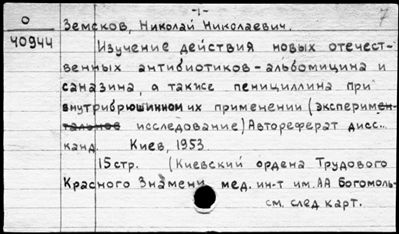 -1-
7
О
40944
Земсков, Николай Николаевич.
Изучение действия новых отечест-
венных антибиотиков-альбомицина и
саназина, а также пенициллина при
внутрибрюшинном их применении (эксперимен-
тальное исследование) Автореферат дисс..
канд. Киев, 1953.
15 стр. (Киевский ордена Трудового
Красного Знамени мед. ин-т им. АА Богомоль-
см. след карт.